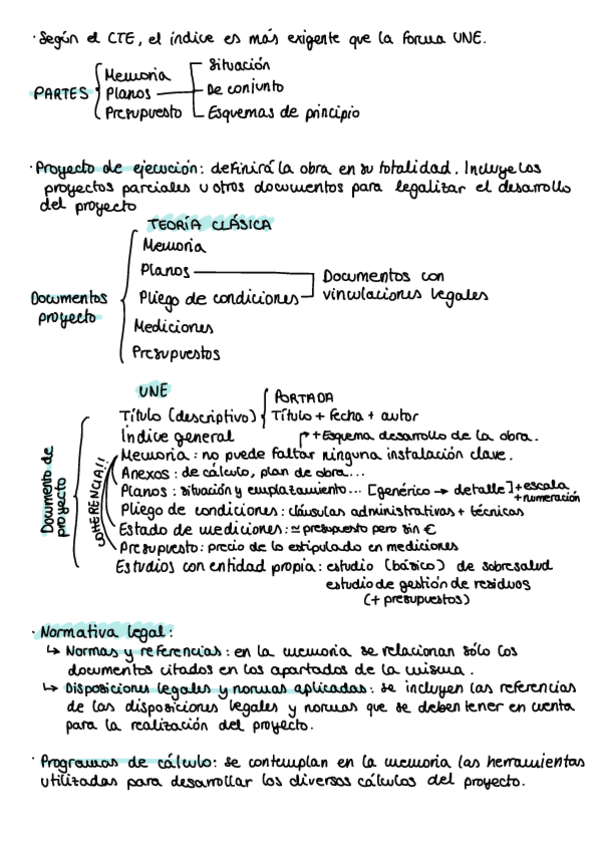 · Según el CTE, el índice es más exigente que la forma UNE.
PARTES
Memoria
Planos
Presupuesto
Situación
De conjunto
Esquemas de principio
· Proyecto de ejecución: definirá la obra en su totalidad. Incluye los
proyectos parciales u otros documentos para legalizar el desarrollo
del proyecto
TEORÍA CLÁSICA
Documentos
proyecto
Memoria
Planos
Pliego de condiciones
Mediciones
Presupuestos
Documentos con
vinculaciones legales
UNE
Documento de
proyecto
COHERENCIA!!
Título (descriptivo)
PORTADA
Título + fecha + autor
Índice general
+Esquema desarrollo de la obra.
Memoria: no puede faltar ninguna instalación clave.
Anexos: de cálculo, plan de obra...
Planos: situación y emplazamiento... [genérico → detalle] +escala
+numeración
Pliego de condiciones: cláusulas administrativas + técnicas
Estado de mediciones: ≃ presupuesto pero sin €
Presupuesto: precio de lo estipulado en mediciones
Estudios con entidad propia: estudio (básico) de sobresalud
estudio de gestión de residuos
(+ presupuestos)
· Normativa legal:
↳ Normas y referencias: en la memoria se relacionan sólo los
documentos citados en los apartados de la misma.
↳ Disposiciones legales y normas aplicadas: se incluyen las referencias
de las disposiciones legales y normas que se deben tener en cuenta
para la realización del proyecto.
· Programas de cálculo: se contemplan en la memoria las herramientas
utilizadas para desarrollar los diversos cálculos del proyecto.